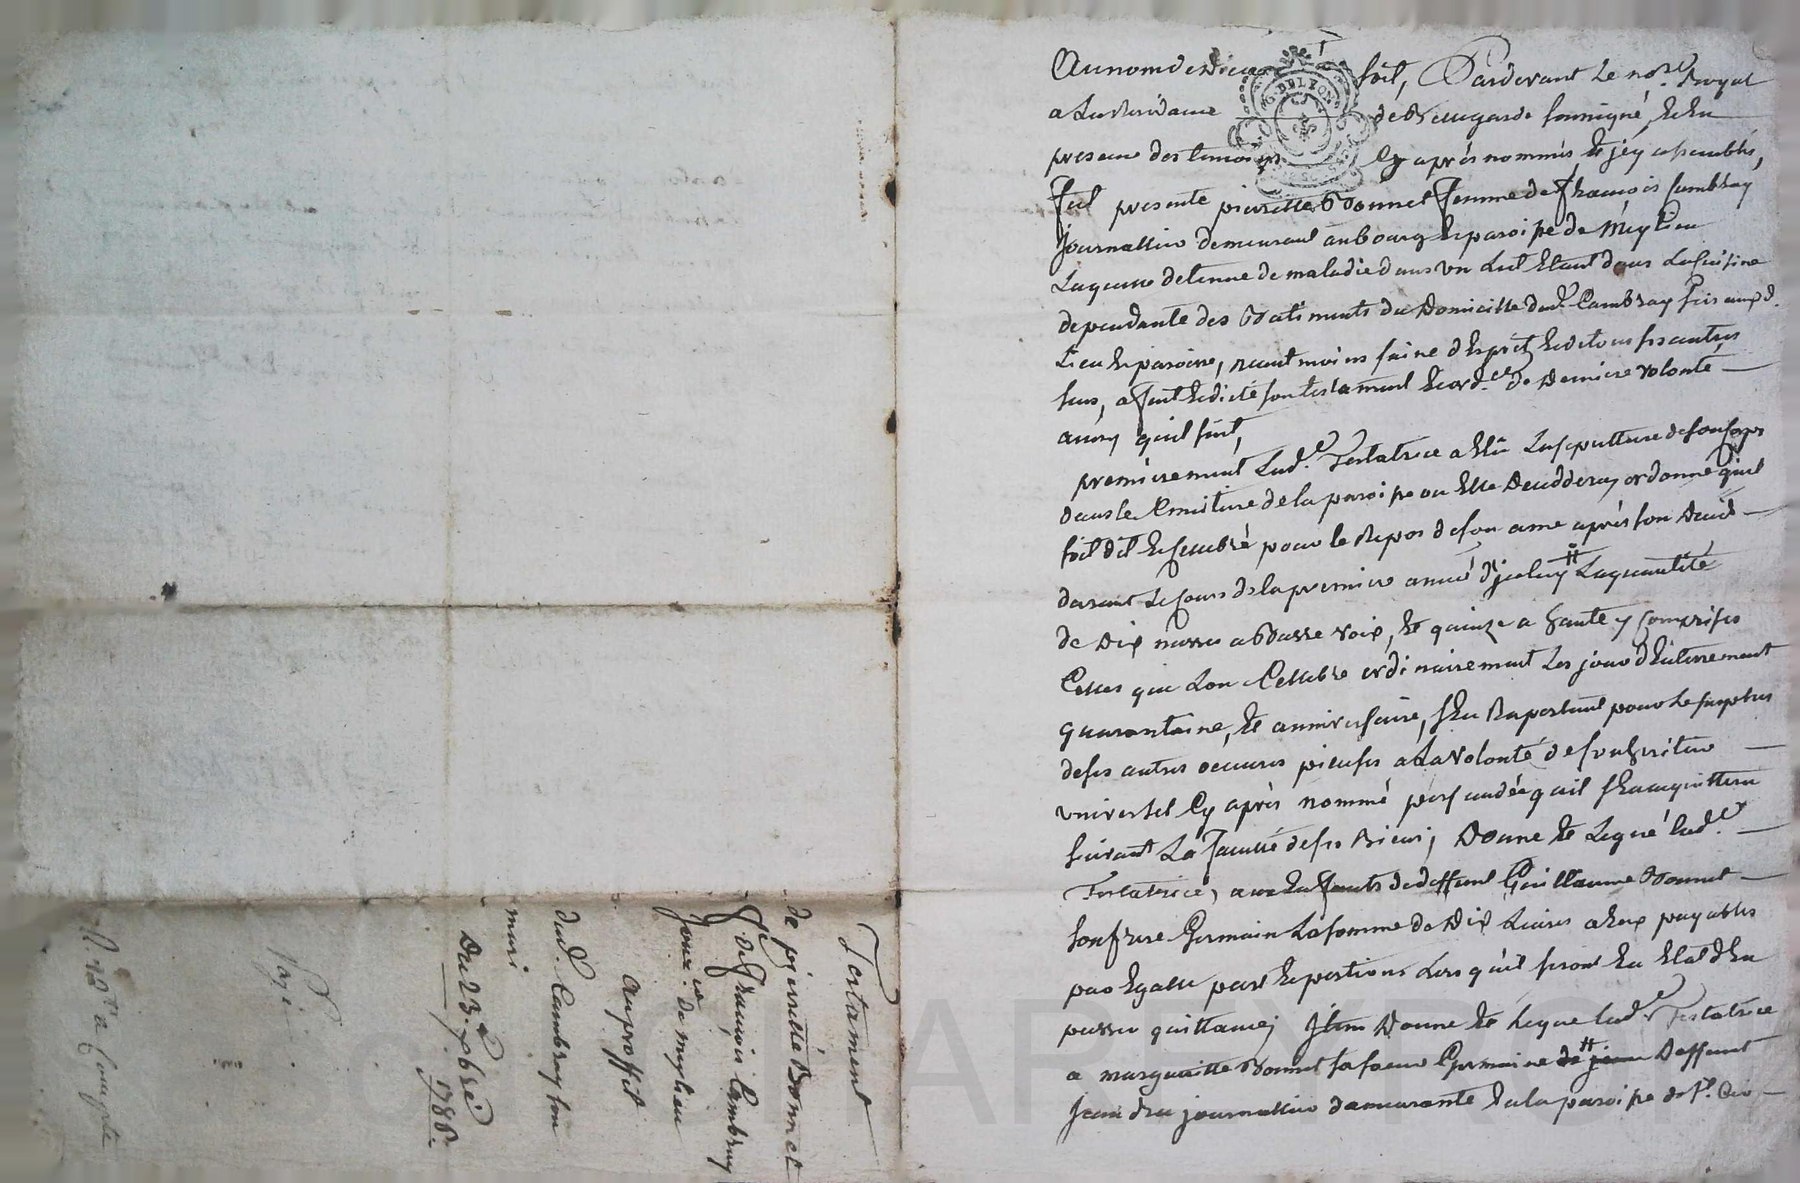 Au nom de Dieu soit, Pardevant Le no.re Royal
a La Résidance de Beaugarde soussigné, Et En
presence des temoins Cy après nommés, Et jcy assemblés,
fut presente pierrette Bonnet femme de françois Cambray
journallier demeurant au bourg Et paroisse de Meylieu
Laquelle detenue de maladie dans un Lit Etant dans La Cuisine
dependante des Batiments du Domicille dud. Cambray sis aud.
Lieu Et paroisse, neantmoins saine d'Esprit Et de tous ses autres
sens, a fait Et dicté son testament Et ord.ce de Derniere volonté
ainsy quil suit,
premierement Lad.e Testatrice a Elû La sepulture de son Corps
dans le Cimitiere de la paroisse ou Elle Deceddera, ordonne quil
soit dit Et Cellebré pour le Repos de son ame après son Decès
durant Le Cours de la premiere année d'jceluy # La quantité
de Dix messes a Basse voix, Et quinze a haute y Comprises
Celles que Lon Cellebre ordinairement Les jour d'Enterrement
quarantaine, Et anniversaire, s'En Raportant pour Le surplus
de ses autres oeuvres pieuses a La volonté de son heritier
universel Cy après nommé persuadée quil s'En acquittera
suivant La faculté de ses Biens; Donne Et Legue Lad.e
Testatrice, aux Enfants de deffunt Guillaume Bonnet
son frere Germain La somme de Dix Livres a Eux payables
par Egalle part Et portions Lors quil seront En Etat d'En
passer quittance; jtem Donne Et Legue Lad.e Testatrice
a margueritte Bonnet sa soeur Germaine de # jean Deffunt
jean journallier demeurante En la paroisse de St.
Testament
de pierrette Bonnet
f.e de françois Cambray
jour.er de meylieu
au proffit
dud. Cambray son
mari
Du 23. 7bre
1788.
Payé
CAREYRON